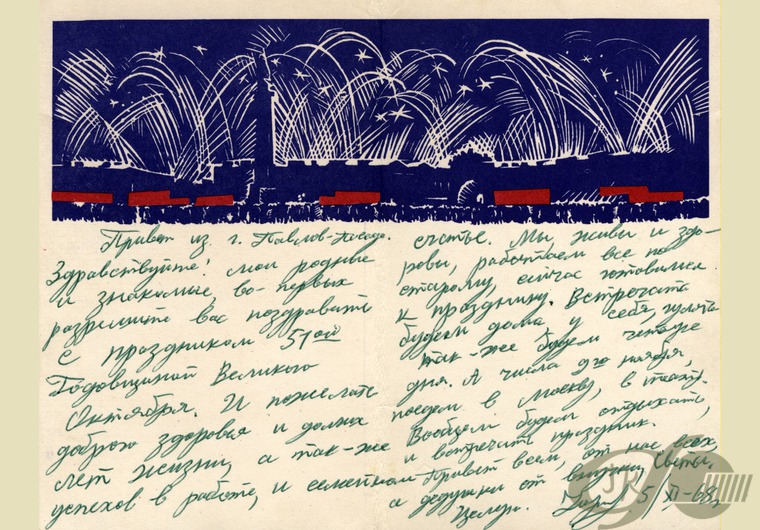 Привет из г. Павлов-Посада.
Здравствуйте! мои родные
и знакомые, во-первых
разрешите вас поздравить
с праздником 51ой
Годовщиной Великого
Октября. И пожелать
доброго здоровья и долгих
лет жизни, а так-же
успехов в работе, и семейном
счастье. Мы живы и здо-
ровы, работаем все по
старому, сейчас готовимся
к празднику. Встречать
будем дома у себя, гулять
так-же будем четыре
дня. А числа 9го ноября,
поедем в Москву, в театр.
Вообщем будем отдыхать,
и встречать праздник.
Привет всем, от нас всех,
а дедушки от внучки Светы.
Целую. 5/XI-68г.
JR